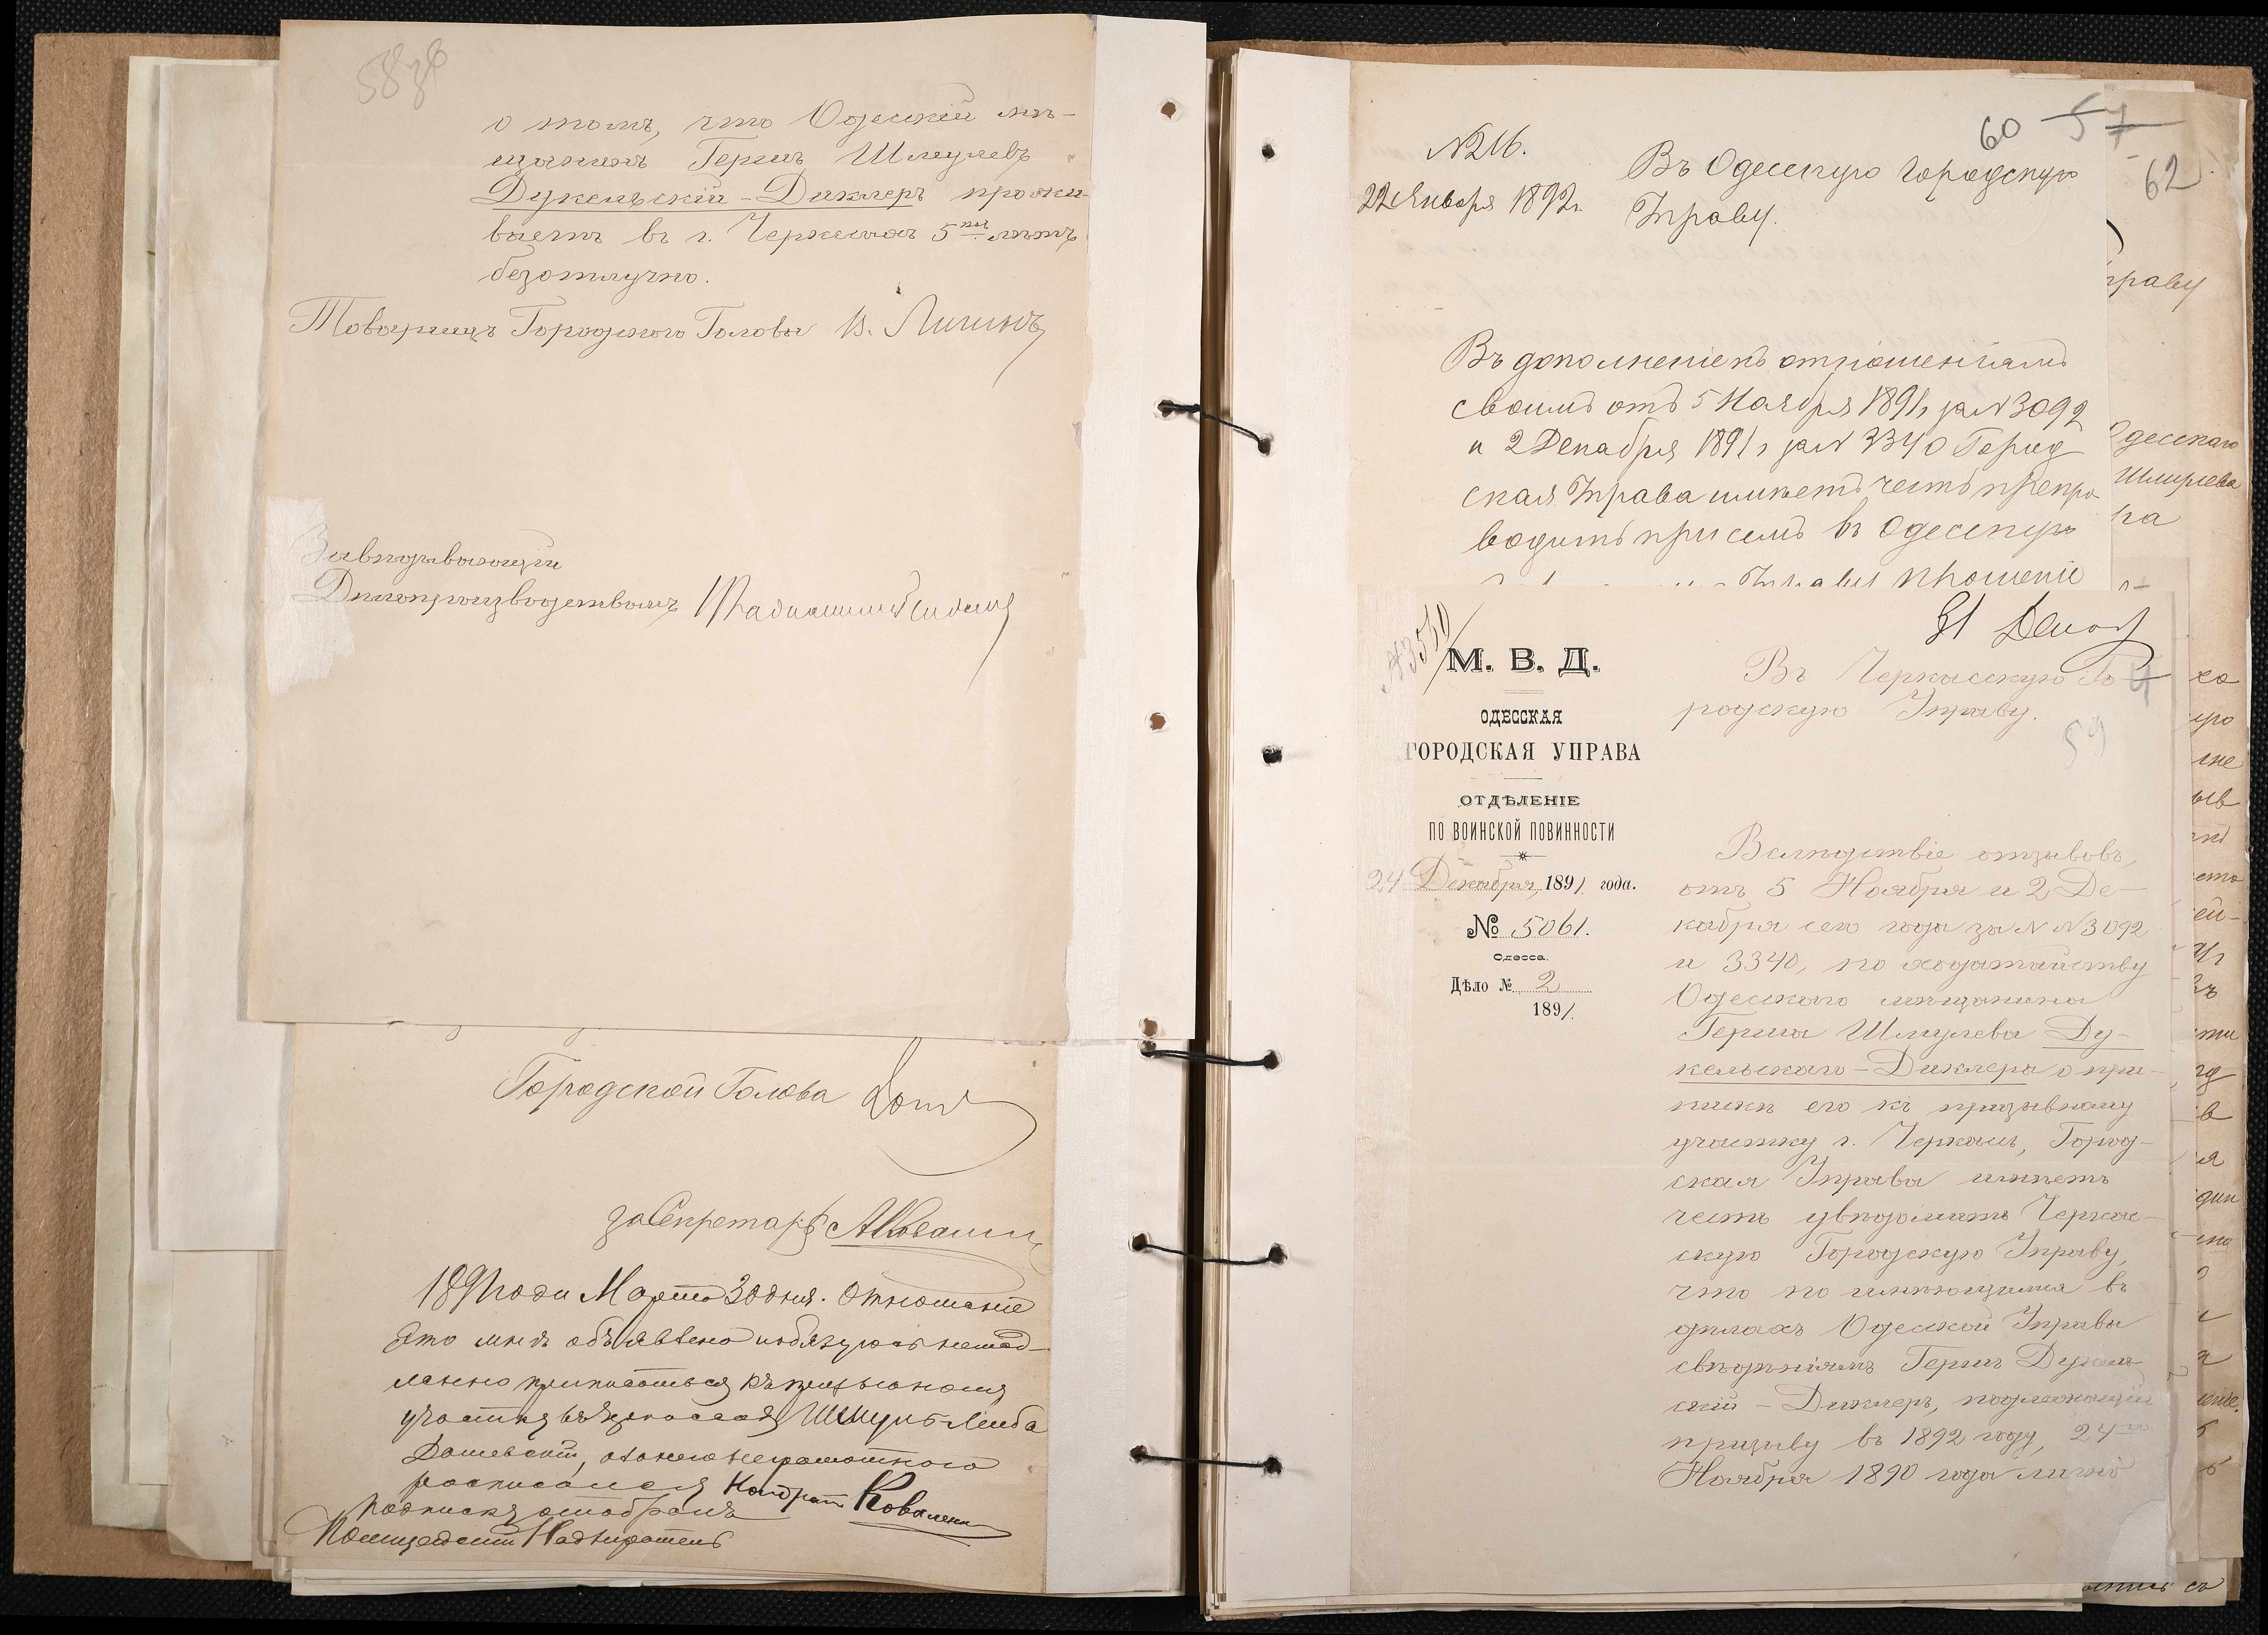 о томъ, что Одесскій мѣ-
щанинъ Гершъ Шмулевъ
Дукельскій-Диклеръ прожи-
ваетъ въ г. Черкасахъ 5 лѣтъ
безотлучно.
Товарищъ Городского Головы В. Лигинъ
Завѣдывающій
Дѣлопроизводствомъ
Городской Голова
за Секретаря
1891 года Марта 30 дня. Отношеніе
это мнѣ объявлено и обязуюсь немед-
ленно приписаться къ призывному
участку въ Черкассахъ Шмуль-Лейба
Дашевскій, а за него неграмотнаго
росписался Кондратъ Коваленко
Подписку отобралъ
Полицейскій Надзиратель
60 57
62
№ 216.
22 Января 1892 г.
Въ Одесскую Городскую
Управу.
Въ дополненіе къ отношеніямъ
своимъ отъ 5 Ноября 1891 г. за № 3092
и 2 Декабря 1891 г. за № 3340 Город
ская Управа имѣетъ честь препро
водить при семъ въ Одесскую
Управу прошеніе
праву
Одесскаго
Шмулева
М. В. Д.
ОДЕССКАЯ
ГОРОДСКАЯ УПРАВА
ОТДѢЛЕНІЕ
ПО ВОИНСКОЙ ПОВИННОСТИ
24 Декабря 1891 года.
№ 5061.
Одесса.
Дѣло № 2
1891.
31 Декаб
Въ Черкасскую Го-
родскую Управу.
59
Вслѣдствіе отзывовъ,
отъ 5 Ноября и 2 Де-
кабря сего года за № № 3092
и 3340, по ходатайству
Одесскаго мѣщанина
Герша Шмулева Ду-
кельскаго-Диклера о при-
пискѣ его къ призывному
участку г. Черкасъ, Город-
ская Управа имѣетъ
честь увѣдомить Черкас-
скую Городскую Управу,
что по имѣющимся въ
дѣлахъ Одесской Управы
свѣдѣніямъ Гершъ Дукель-
скій - Диклеръ, подлежащій
призыву въ 1892 году, 24го
Ноября 1890 года лично